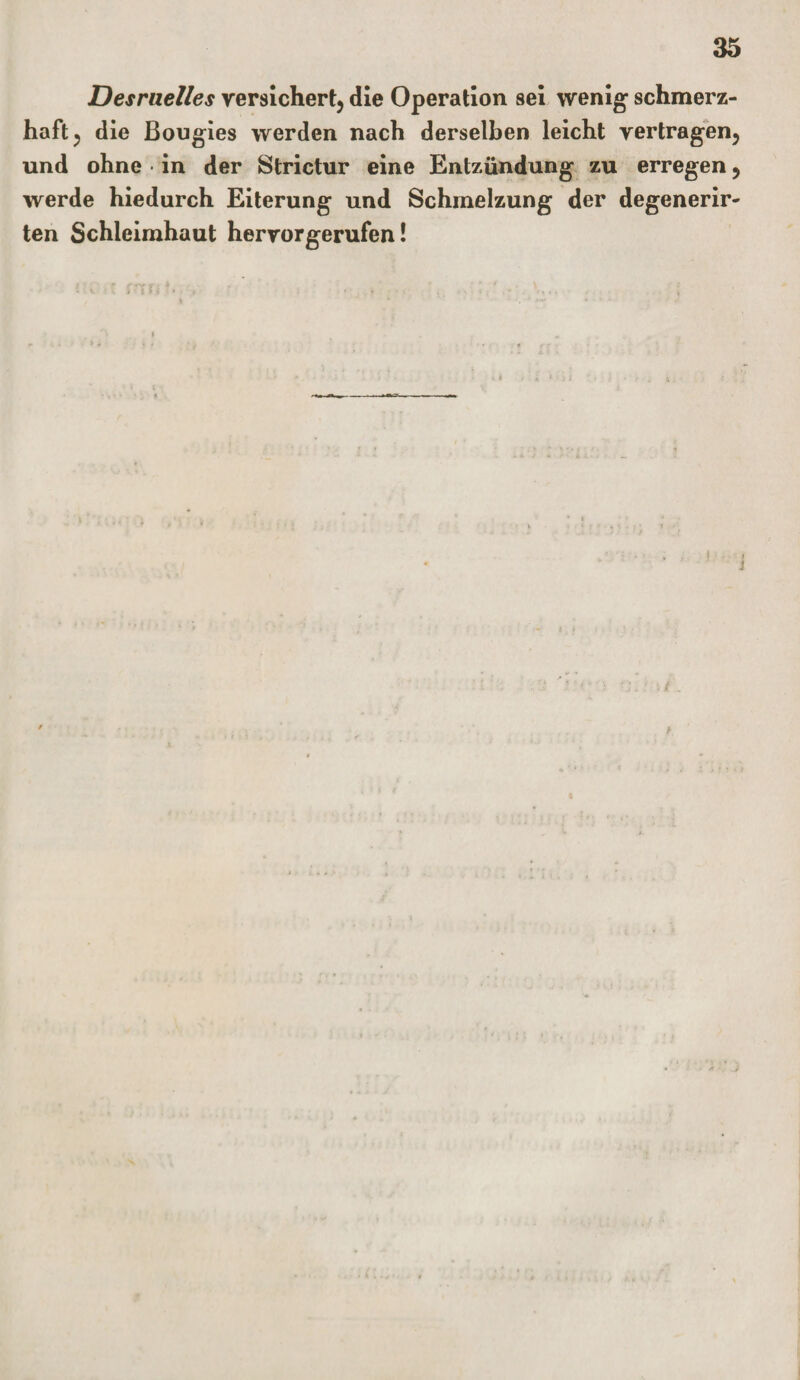 35
Desruelles versichert, die Operation sei wenig schmerz-
haft, die Bougies werden nach derselben leicht vertragen,
und ohne in der Strictur eine Entzündung zu erregen,
werde hiedurch Eiterung und Schmelzung der degenerir-
ten Schleimhaut hervorgerufen!